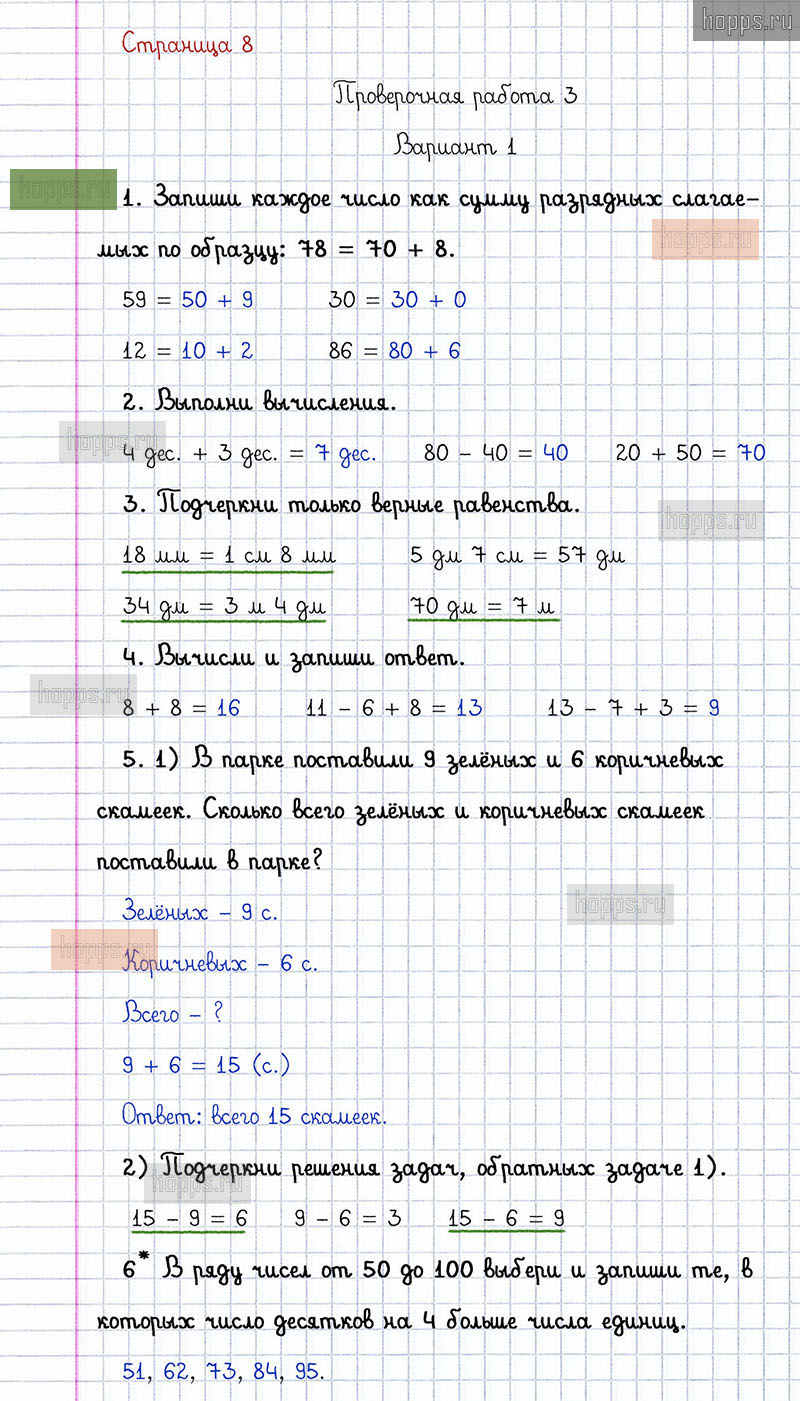 hopps.ru
Страница 8
Проверочная работа 3
Вариант 1
hopps.ru
1. Запиши каждое число как сумму разрядных слагае-
hopps.ru
мых по образцу: 78 = 70 + 8.
59 = 50 + 9 30 = 30 + 0
12 = 10 + 2 86 = 80 + 6
2. Выполни вычисления.
hopps.ru
4 дес. + 3 дес. = 7 дес. 80 - 40 = 40 20 + 50 = 70
3. Подчеркни только верные равенства.
hopps.ru
18 мм = 1 см 8 мм 5 дм 7 см = 57 дм
34 дм = 3 м 4 дм 70 дм = 7 м
4. Вычисли и запиши ответ.
hopps.ru
8 + 8 = 16 11 - 6 + 8 = 13 13 - 7 + 3 = 9
5. 1) В парке поставили 9 зелёных и 6 коричневых
скамеек. Сколько всего зелёных и коричневых скамеек
поставили в парке?
hopps.ru
Зелёных - 9 с.
hopps.ru
Коричневых - 6 с.
Всего - ?
9 + 6 = 15 (с.)
Ответ: всего 15 скамеек.
2) Подчеркни решения задач, обратных задаче 1).
hopps.ru
15 - 9 = 6 9 - 6 = 3 15 - 6 = 9
6* В ряду чисел от 50 до 100 выбери и запиши те, в
которых число десятков на 4 больше числа единиц.
51, 62, 73, 84, 95.